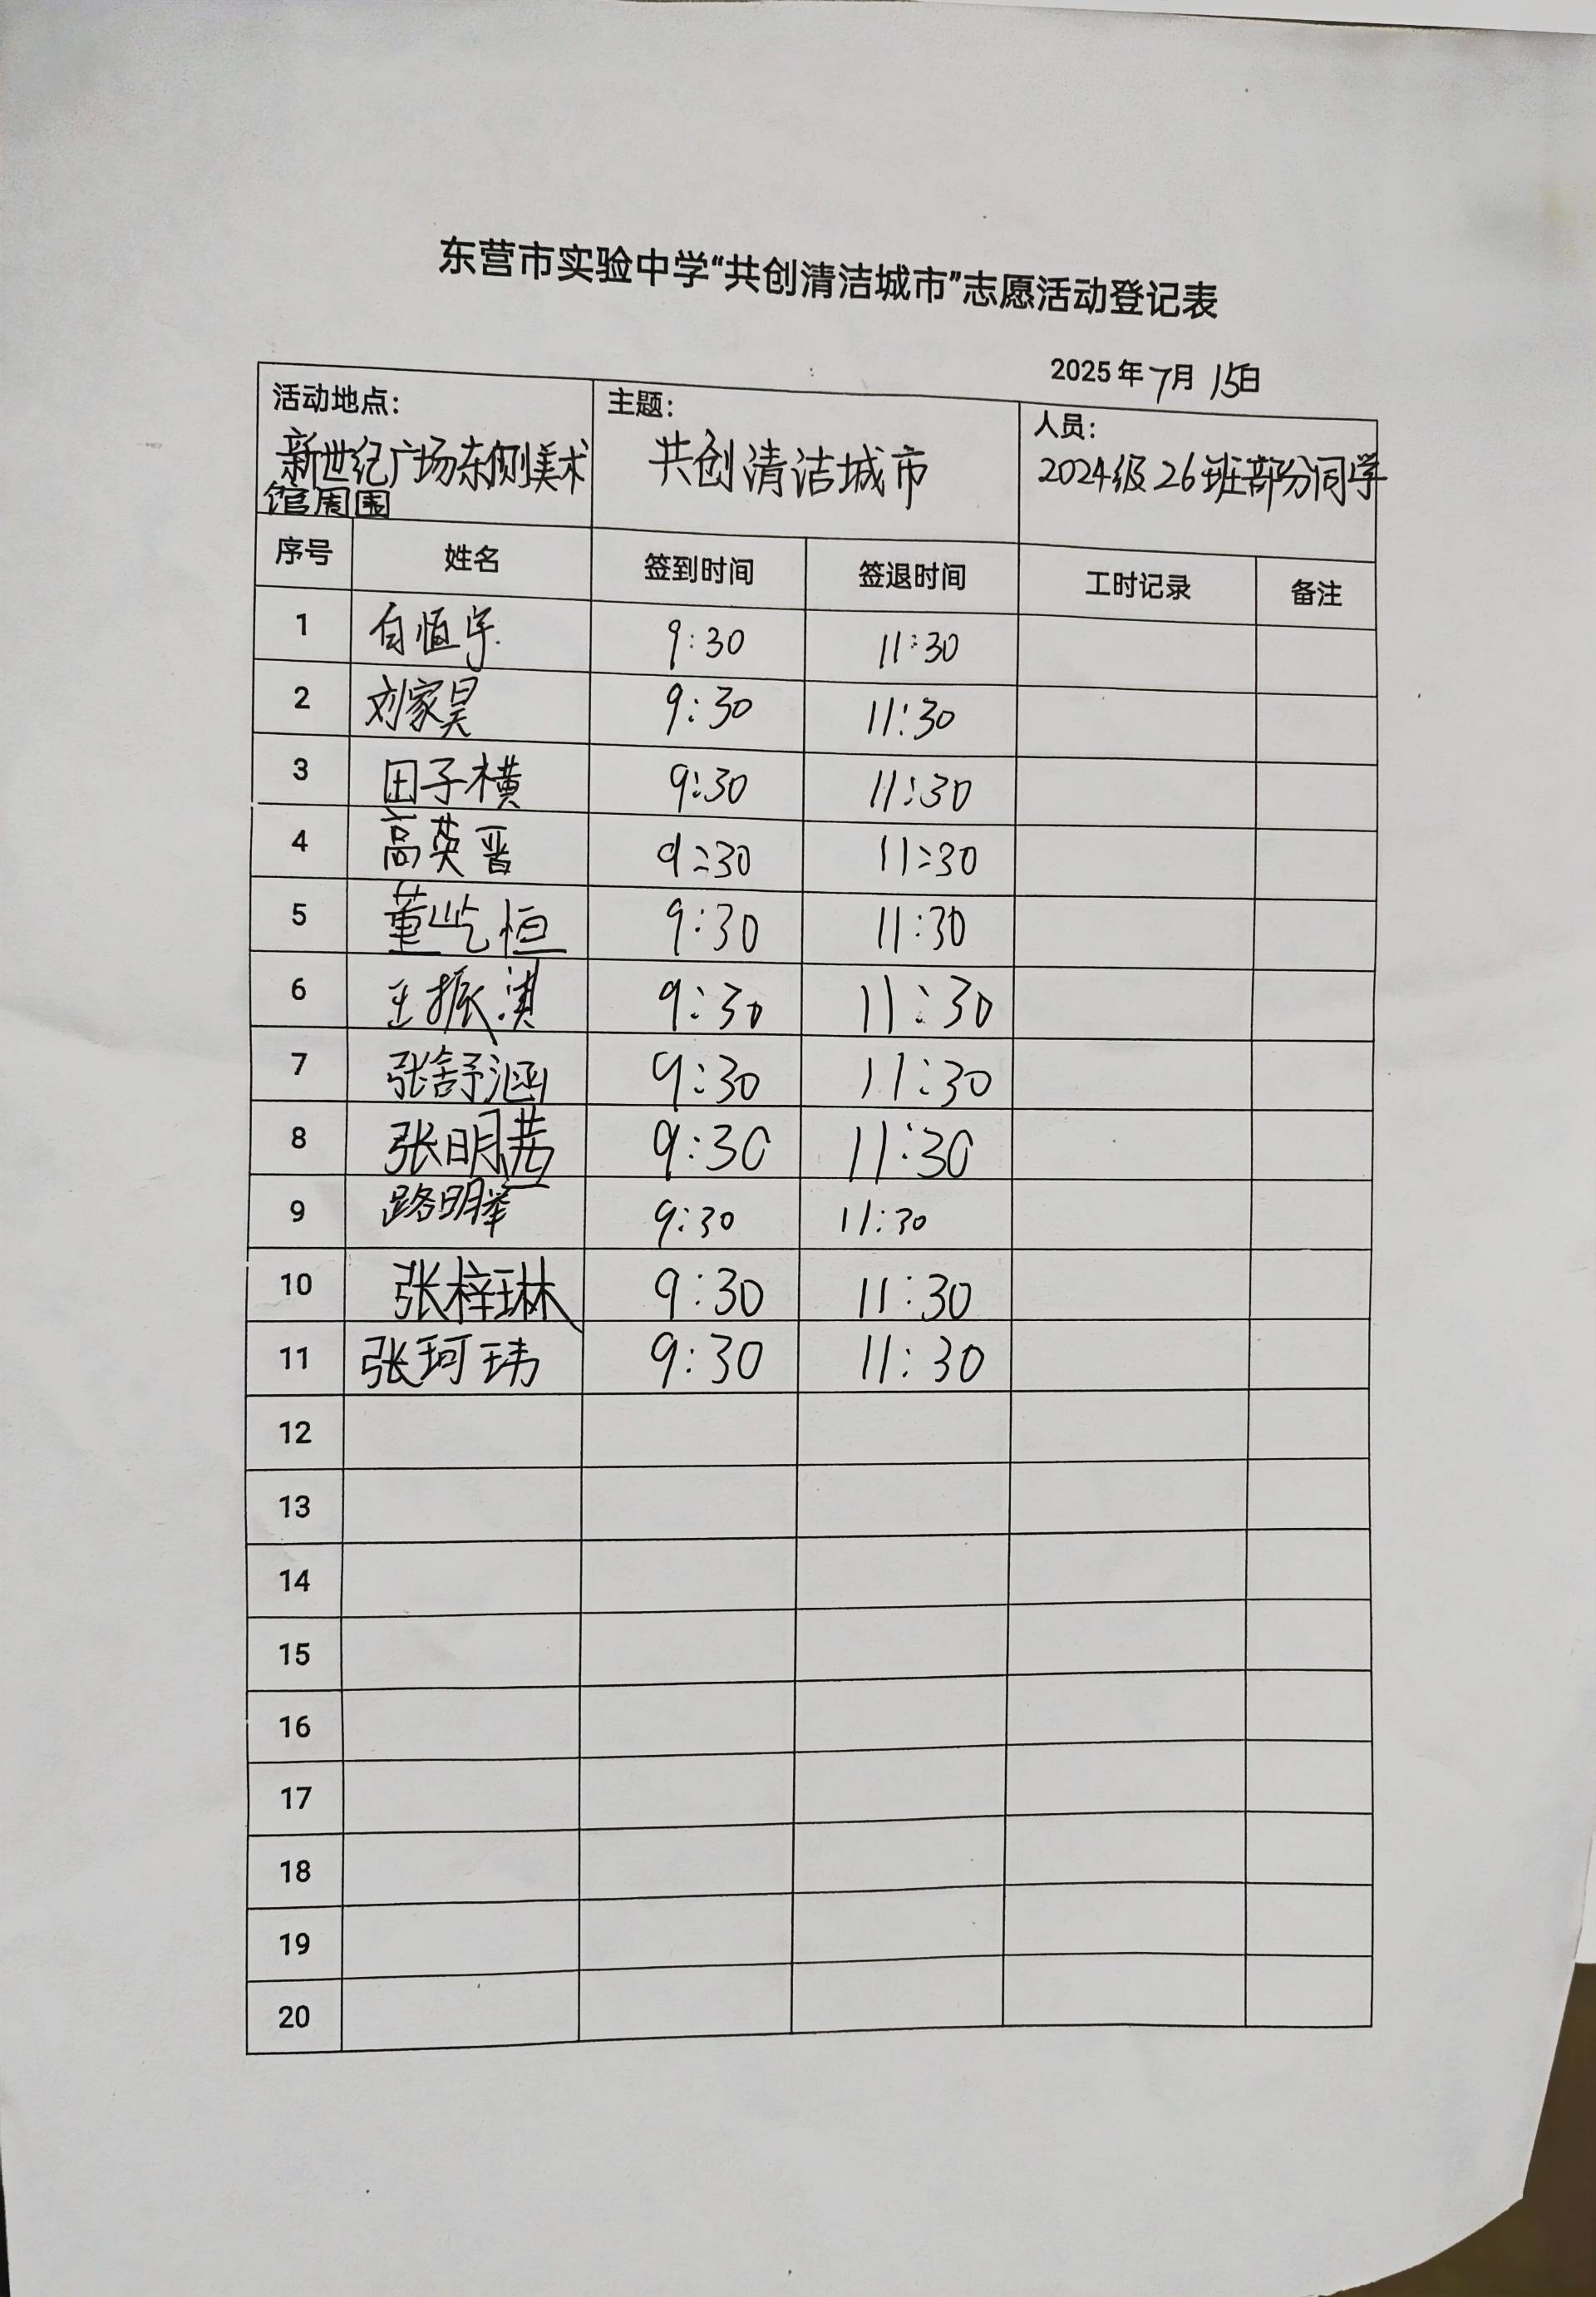 东营市实验中学“共创清洁城市”志愿活动登记表
2025年7月15日
活动地点: 主题: 人员:
新世纪广场东侧美术 共创清洁城市 2024级26班部分同学
馆周围
序号 姓名 签到时间 签退时间 工时记录 备注
1 白恒宇 9:30 11:30
2 刘家昊 9:30 11:30
3 田子横 9:30 11:30
4 高英晋 9:30 11:30
5 董屹恒 9:30 11:30
6 王振淇 9:30 11:30
7 张舒涵 9:30 11:30
8 张明茜 9:30 11:30
9 路明 9:30 11:30
10 张梓琳 9:30 11:30
11 张珂玮 9:30 11:30
12
13
14
15
16
17
18
19
20